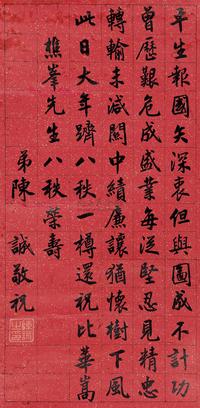 平生報國矢深衷但與圖成不計功
曾歷艱危成盛業每從堅忍見精忠
轉輸未減關中績廉讓猶懷樹下風
此日大年躋八秩一樽還祝比華嵩
樵峯先生八秩榮壽
弟陳誠敬祝